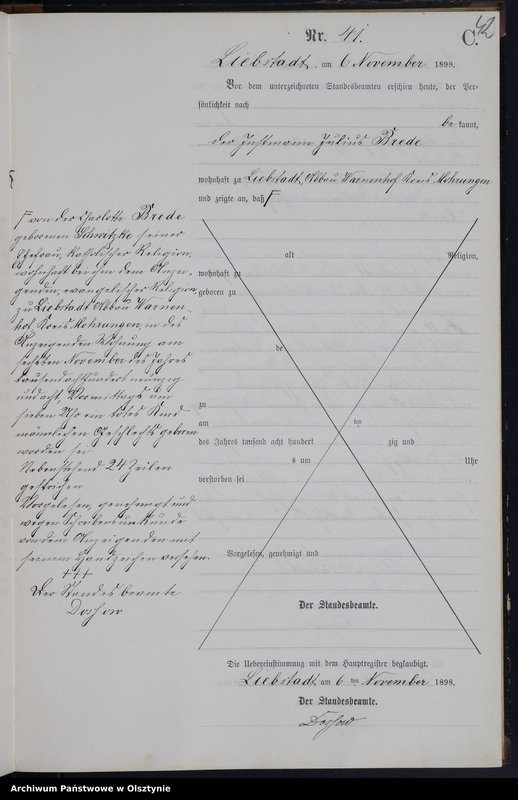 42
C.
Nr. 41.
Liebstadt, am 6 November 1898.
Vor dem unterzeichneten Standesbeamten erschien heute, der Per-
sönlichkeit nach
be kannt,
der Instmann Julius Brede
wohnhaft zu Liebstadt, Abbau Warnenhof Kreis Mohrungen
und zeigte an, daß Γ
Γ von der Charlotte Brede
geborenen seiner
Ehefrau, katholischer Religion,
wohnhaft bei ihm dem Anzei-
genden, evangelischer Religion,
zu Liebstadt Abbau Warnen-
hof, Kreis Mohrungen, in des
Anzeigenden Wohnung am
sechsten November des Jahres
tausend achthundert neunzig
und acht, Vormittags um
sieben Uhr ein totes Kind
männlichen Geschlechts geboren
worden sei.
Nebenstehend 24 Zeilen
gestrichen.
Vorgelesen, genehmigt und
wegen Schreibensunkunde
von dem Anzeigenden mit
seinem Handzeichen versehen.
+++
Der Standesbeamte
alt Religion,
wohnhaft zu
geboren zu
de
zu
am ten
des Jahres tausend acht hundert zig und
s um Uhr
verstorben sei
Vorgelesen, genehmigt und
Der Standesbeamte.
Die Uebereinstimmung mit dem Hauptregister beglaubigt.
Liebstadt, am 6 ten November 1898.
Der Standesbeamte.
Archiwum Państwowe w Olsztynie